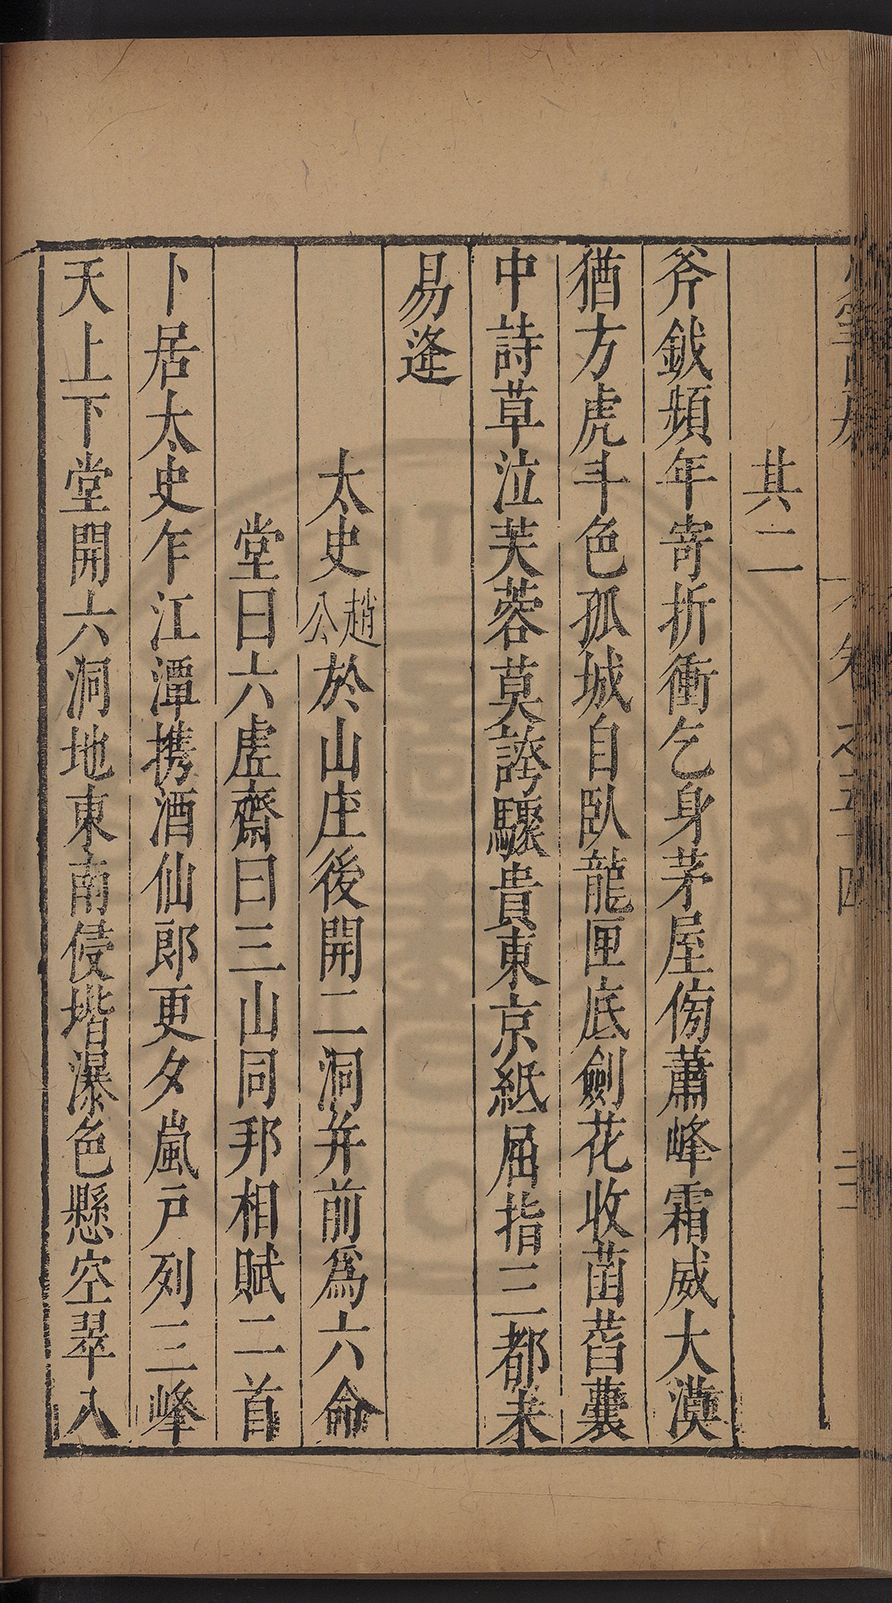 其二
斧鉞頻年寄折衝乞身茅屋傍蕭峰霜威大漠
猶方虎斗色孤城自臥龍匣底劍花收菡萏囊
中詩草泣芙蓉莫誇驟貴東京紙屈指三都未
易逢
太史趙公於山庄後開二洞并前爲六命
堂曰六虛齋曰三山同邦相賦二首
卜居太史乍江潭携酒仙郎更夕嵐戶列三峰
天上下堂開六洞地東南侵堦瀑色懸空翠入